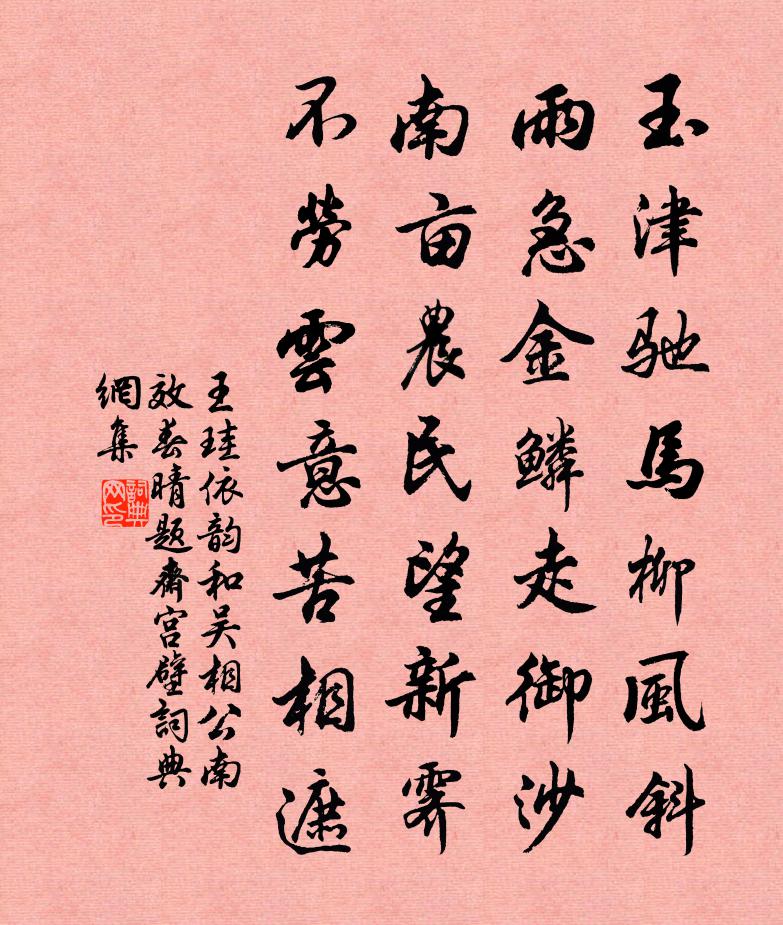 玉津馳馬柳風斜
雨急金鱗走御沙
南亩農民望新霁
不勞雲意苦相遮
王珪依韵和吴相公南
效春晴题齋宫壁詞典
網集
詞典
网印